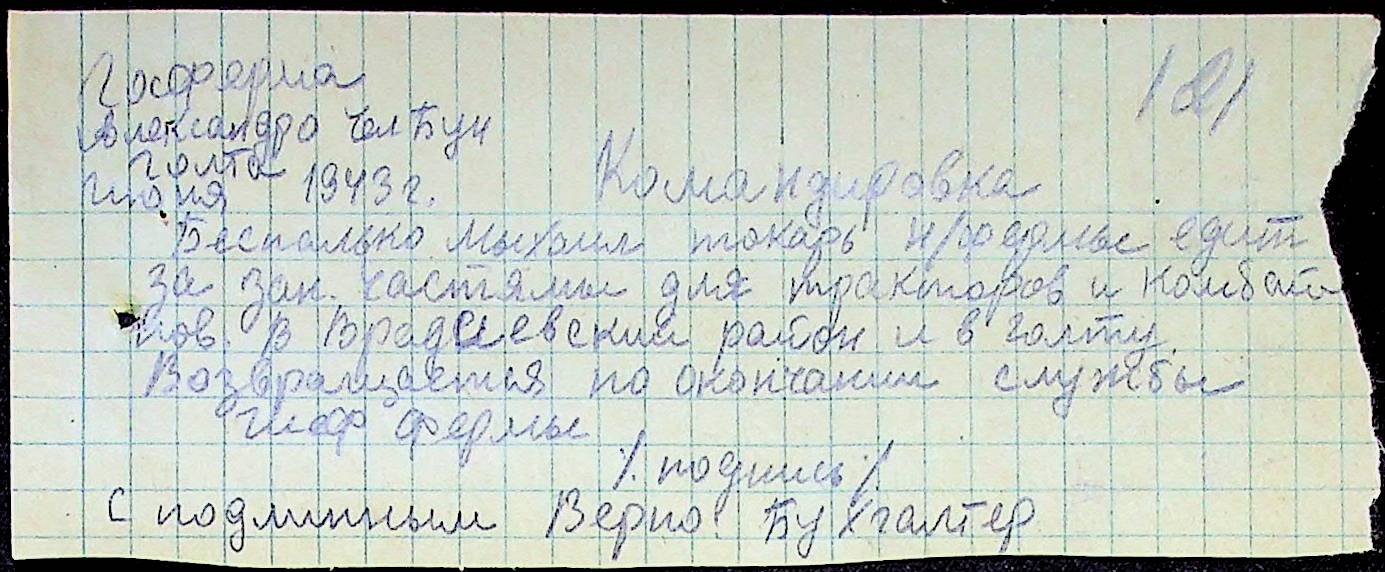 Госферма
Александро чел Бун
Голта
июня 1943 г.
121
Командировка
Беспалько Мыхаил токарь н/фермы едит
за зап. частямы для тракторов и комбай
нов. В Врадиевский район и в Голту
Возвращается по окончании службы
Шеф фермы
/. подпись /.
С подлинным Верно: Бухгалтер